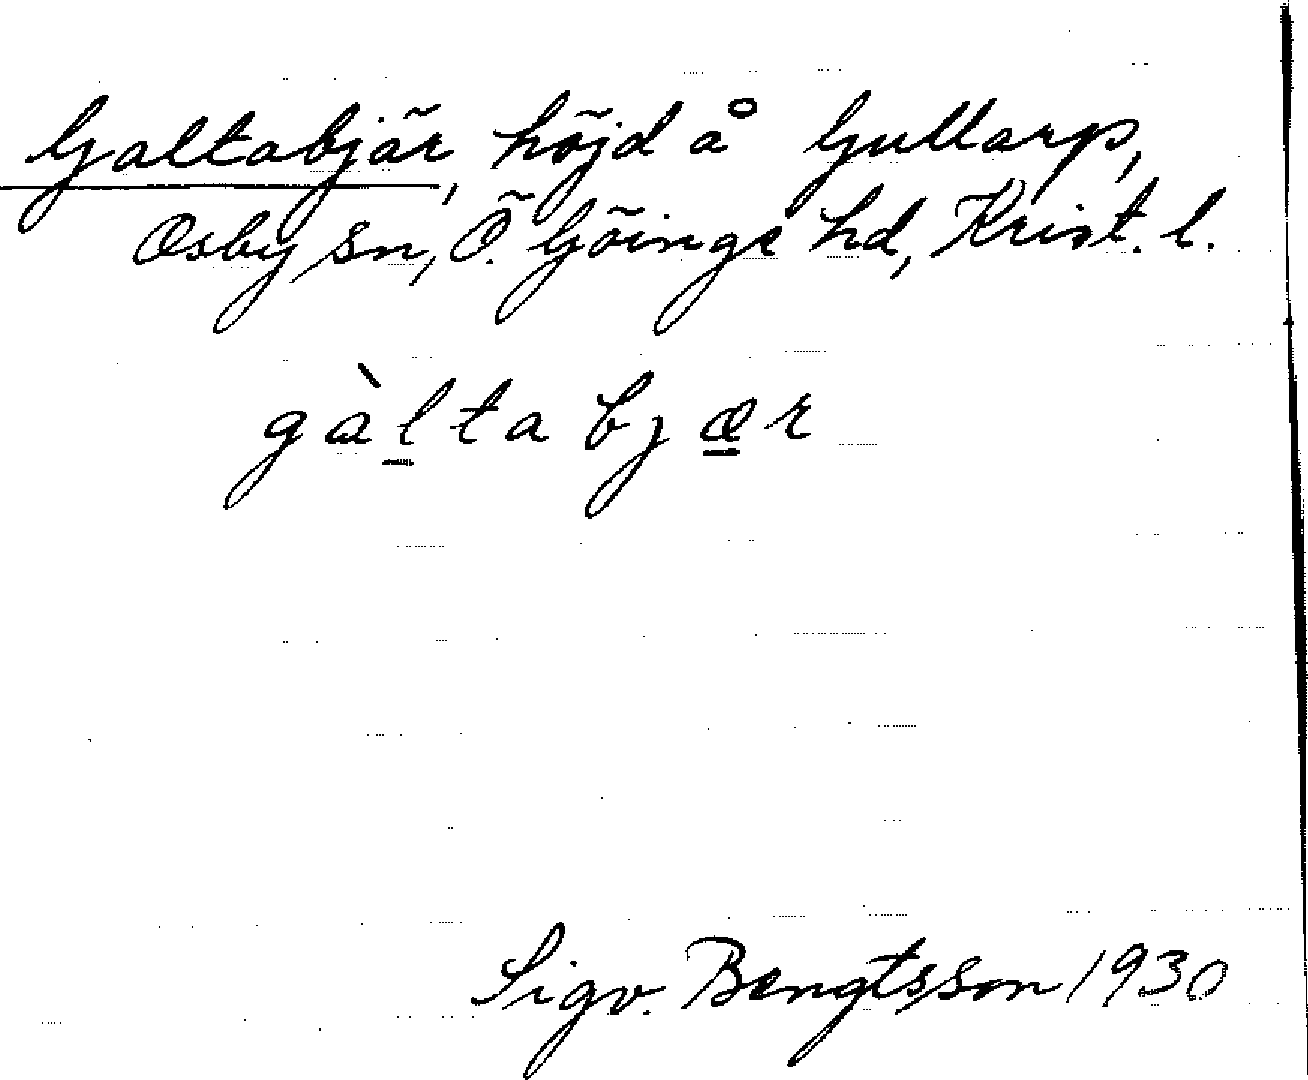 Galtabjär, höjd å Gullarp,
Osby sn, Ö. Göinge hd, Krist. l.
gàltabjær
Sigv. Bengtsson 1930